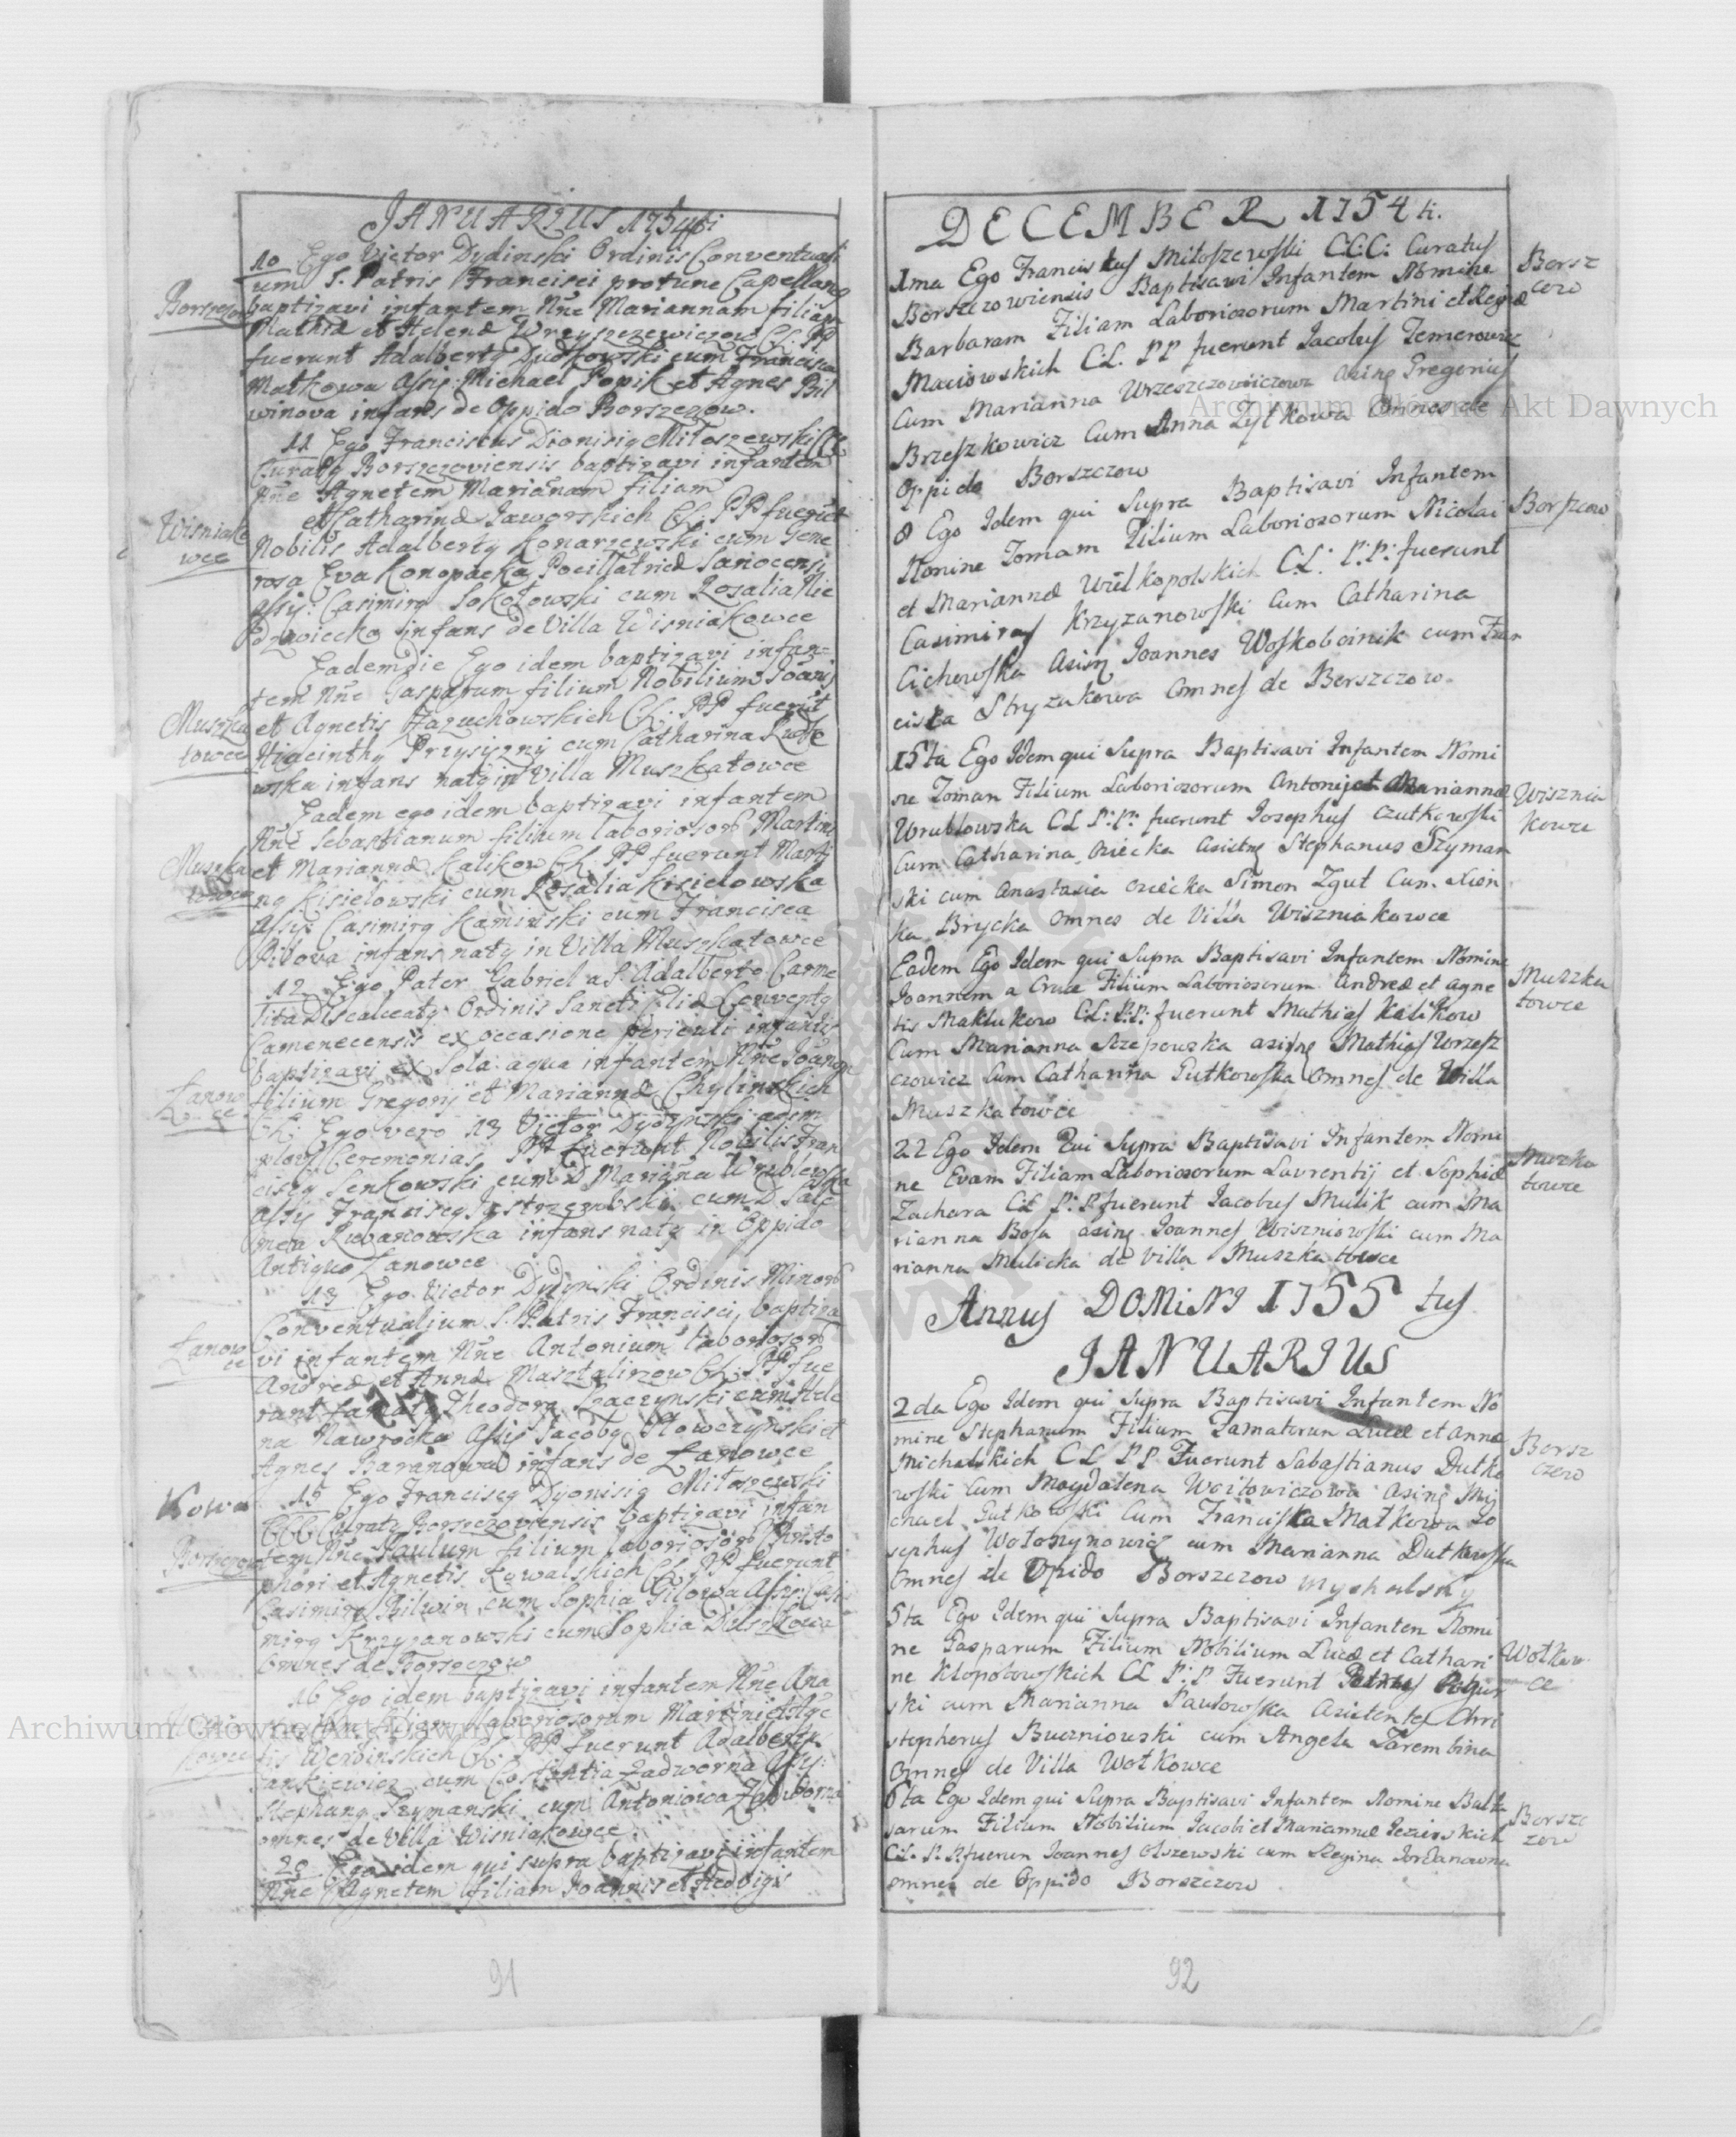 JANUARIUS 1754ti
10 Ego Victor Dydinski Ordinis Conventuali
um S. Patris Francisci protunc Capellanus
Borszczow
baptizavi infantem Nne Mariannam filiam
Mathiæ et Helenæ Wrzyszczewiczow CL: PP
fuerunt Adalbertq Dudkowski cum Francisca
Matkowa Assis: Michael Popik et Agnes Bil
winova infans de Oppido Borszczow.
11 Ego Franciscus Dionisiq Miłoszewski CC
Curatq Borszczoviensis baptizavi infantem
Nne Agnetem Mariānam filiam
et Catharinæ Jaworskich CL: PP fuerūt
Wisniako
wce
Nobilis Adalbertq Konarzewski cum Gene
rosa Eva Konopacka Pocillatricæ Sanocensi
Assis: Casimirq Sokołowski cum Rosalia Nie
dzwiecka infans de Villa Wisniakowce
Eadem die Ego idem baptizavi infan=
tem Nne Gasparum filium Nobilium Joānis
Muszka
towce
et Agnetis Hazuchowskich CL: PP fuerūt
Hiacinthq Przysięzny cum Catharina Rudke
wska infans natq in Villa Muszkatowce
Eadem ego idem baptizavi infantem
Nne Sebastianum filium laboriosor Martini
Muszka
towce
et Mariannæ Kalikow CL: PP fuerunt Marti
nq Kisielowski cum Rosalia Kisielowska
Assis: Casimirq Kaminski cum Francisca
Pilova infans natq in Villa Muszkatowce
12 Ego Pater Gabriel a S. Adalberto Carme
lita Discalceatq Ordinis Sancti Eliæ Conventq
Camenecensis ex occasione periculi infantis
baptizavi ex sola aqua infantem Nne Joānem
Łanow
ce
filium Gregorij et Mariannæ Chylinskich
CL: Ego vero 13 Victor Dydynski adim
plevi Ceremonias PP fuerunt Nobilis Fran
ciscq Senkowski cum D Mariāna Wrublewska
Assis Franciscq Jastrzembski cum D Salo
mea Rubanowska infans natq in Oppido
Antiquo Łanowce
13 Ego Victor Dydynski Ordinis Minor
Conventualium S. Patris Francisci, baptiza
Łanow
ce
vi infantem Nne Antonium laboriosor
Andreæ et Annæ Masztalirzow CL: PP fue
runt famatq Theodorq Łaczynski cum Hele
na Nawrocka Assis Jacobq Słowczynski et
Agnes Baranowa infans de Łanowce
Kowa
15 Ego Franciscq Dyonisiq Miłoszewski
CCC Curatq Borszczoviensis baptizavi infan
Borszczow
tem Nne Paulum filium laboriosor Christo
phori et Agnetis Kowalskich CL: PP fuerunt
Casimirq Bilwin cum Sophia Gilowa Assis: Casi
mirq Krzyzanowski cum Sophia Duszkowa
omnes de Borszczow
16 Ego idem baptizavi infantem Nne Ana
filiam laboriosorum Martini et Agne
kowce
tis Werbinskich CL: PP fuerunt Adalbertq
Jankiewicz cum Costantia Zadworna Assis:
Stephanq Szymanski cum Antoniowa Zadworna
omnes de Villa Wisniakowce
20 Ego idem qui supra baptizavi infantem
Nne Agnetem filiam Joannis et Hedvigis
91
DECEMBER 1754 ti.
1ma Ego Franciskus Miłoszewski C.C.C: Curatus
Borsz
czow
Borszczowiensis Baptisavi Infantem Nomine
Barbaram Filiam Laboriozorum Martini et Reginæ
Maciowskich C:L. PP fuerunt Iacobus Temerowicz
Cum Marianna Wrzeszczowiczowa Asinq Gregorius
Brzeszkowicz Cum Anna Zytkowa Omnes de
Oppido Borszczow
8 Ego Idem qui Supra Baptisavi Infantem
Borszczow
Nomine Tomam Filium Laboriozorum Nicolai
et Mariannæ Wielkopolskich C:L: P:P: fuerunt
Casimirus Krzyzanowski Cum Catharina
Cichowska Asisq Joannes Woskoboinik cum Fran
ciska Stryzakowa Omnes de Borszczow.
15ta Ego Idem qui Supra Baptisavi Infantem Nomi
ne Toman Filium Laboriozorum Antonij et Mariannæ
Wisznia
kowce
Wrublowska CL P:P: fuerunt Iosephus Czutkowski
Cum Catharina Osiecka Asistnq Stephanus Szyman
ski cum Anastasia Osiecka Simon Zgut Cum Xion
ka Brycka Omnes de Villa Wiszniakowce
Eadem Ego Idem qui Supra Baptisavi Infantem Nomine
Muszka
towce
Joannem a Cruce Filium Laboriosorum Andreæ et Agne
tis Maklukow CL: P:P: fuerunt Mathias Kalikow
Cum Marianna Rzepowzka asisnq Mathias Wrzesz
czowicz Cum Catharina Gutkowska Omnes de Willa
Muszkatowce
22 Ego Idem Qui Supra Baptisavi Infantem Nomi
Muszka
towce
ne Evam Filiam Laboriozorum Laurentij et Sophiæ
Zachara CL P:P fuerunt Iacobus Mulik cum Ma
rianna Bosa asinq Joannes Wiszniowski cum Ma
rianna Mulicka de Villa Muszkatowce
Annus DOMINI 1755 tus
JANUARIUS
2da Ego Idem qui Supra Baptisavi Infantem No
mine Stephanum Filium Famatorun Lucæ et Annæ
Borsz
czow
Michalskich CL PP Fuerunt Sabastianus Dutko
wski Cum Magdalena Woitowiczowa Asinq Mi
chael Gutkowski Cum Franciska Matkowa Io
sephus Wołoszynowicz cum Marianna Dutkowska
Omnes de Opido Borszczow mychalsky
5ta Ego Idem qui Supra Baptisavi Infanten Nomi
ne Gasparum Filium Nobilium Lucæ et Cathari
Wołkow
ce
ne Kłopotowskich CL P:P Fuerunt Petrus
ski cum Marianna Pawłowska Asistentes Chri
stophorus Buczniowski cum Angela Zarembina
Omnes de Villa Wołkowce
6ta Ego Idem qui Supra Baptisavi Infantem Nomine Balta
Borszc
zow
sarum Filium Nobilium Iacobi et Mariannæ Iezierskich
CL. P. P. fuerun Joannes Olszewski cum Regina Iordanowna
omnes de Oppido Borszczow
92
Archiwum Główne Akt Dawnych
Archiwum Główne Akt Dawnych